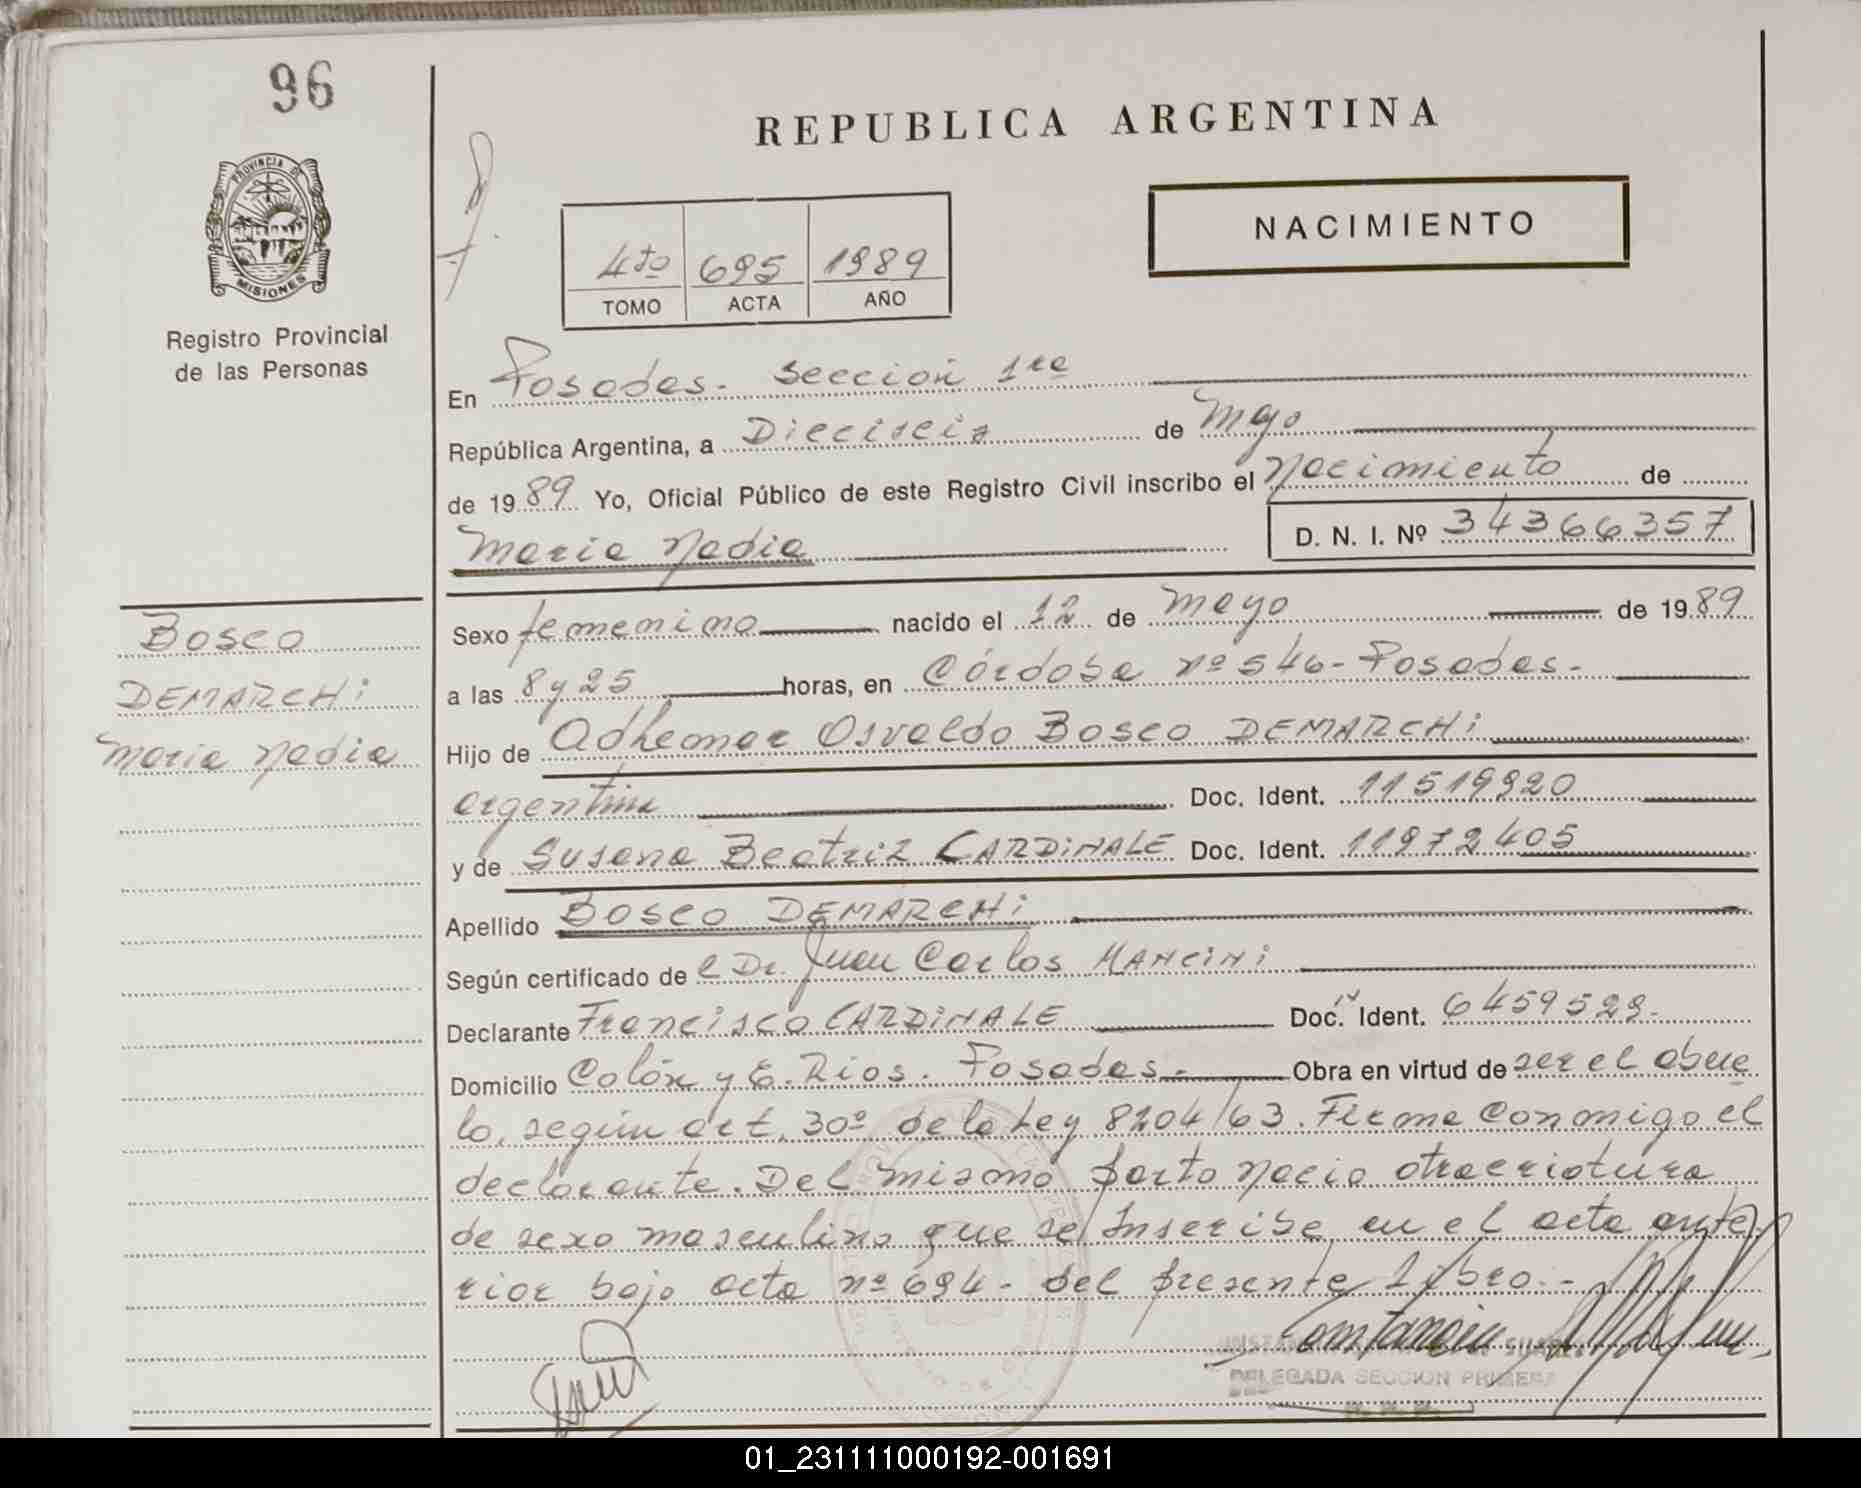 96
REPUBLICA ARGENTINA
PROVINCIA DE
MISIONES
Registro Provincial
de las Personas
NACIMIENTO
4to 695 1989
TOMO ACTA AÑO
En Posadas. Sección 1ra
República Argentina, a Dieciseis de Mayo
de 1989 Yo, Oficial Público de este Registro Civil inscribo el Nacimiento de
Maria Nadia D. N. I. Nº 34366357
Bosco
DEMARCHi
Maria Nadia
Sexo femenino nacido el 12 de Mayo de 1989
a las 8 y 25 horas, en Córdoba nº 546- Posadas-
Hijo de Adhemar Osvaldo Bosco DEMARCHi
argentina Doc. Ident. 11519920
y de Susana Beatriz CARDiNALE Doc. Ident. 11972405
Apellido Bosco DEMARCHi
Según certificado de el Dr. Juan Carlos MANCiNi
Declarante Francisco CARDiNALE Doc. Ident. 6459529.
Domicilio Colón y E. Rios. Posadas.- Obra en virtud de ser el abue
lo, según art. 30º de la Ley 8204/63. Firma conmigo el
declarante. Del mismo parto nacio otra criatura
de sexo masculino que se Inscribe en el acta ante-
rior bajo acta nº 694- del presente Libro.-
DELEGADA SECCION PRIMERA
01_231111000192-001691